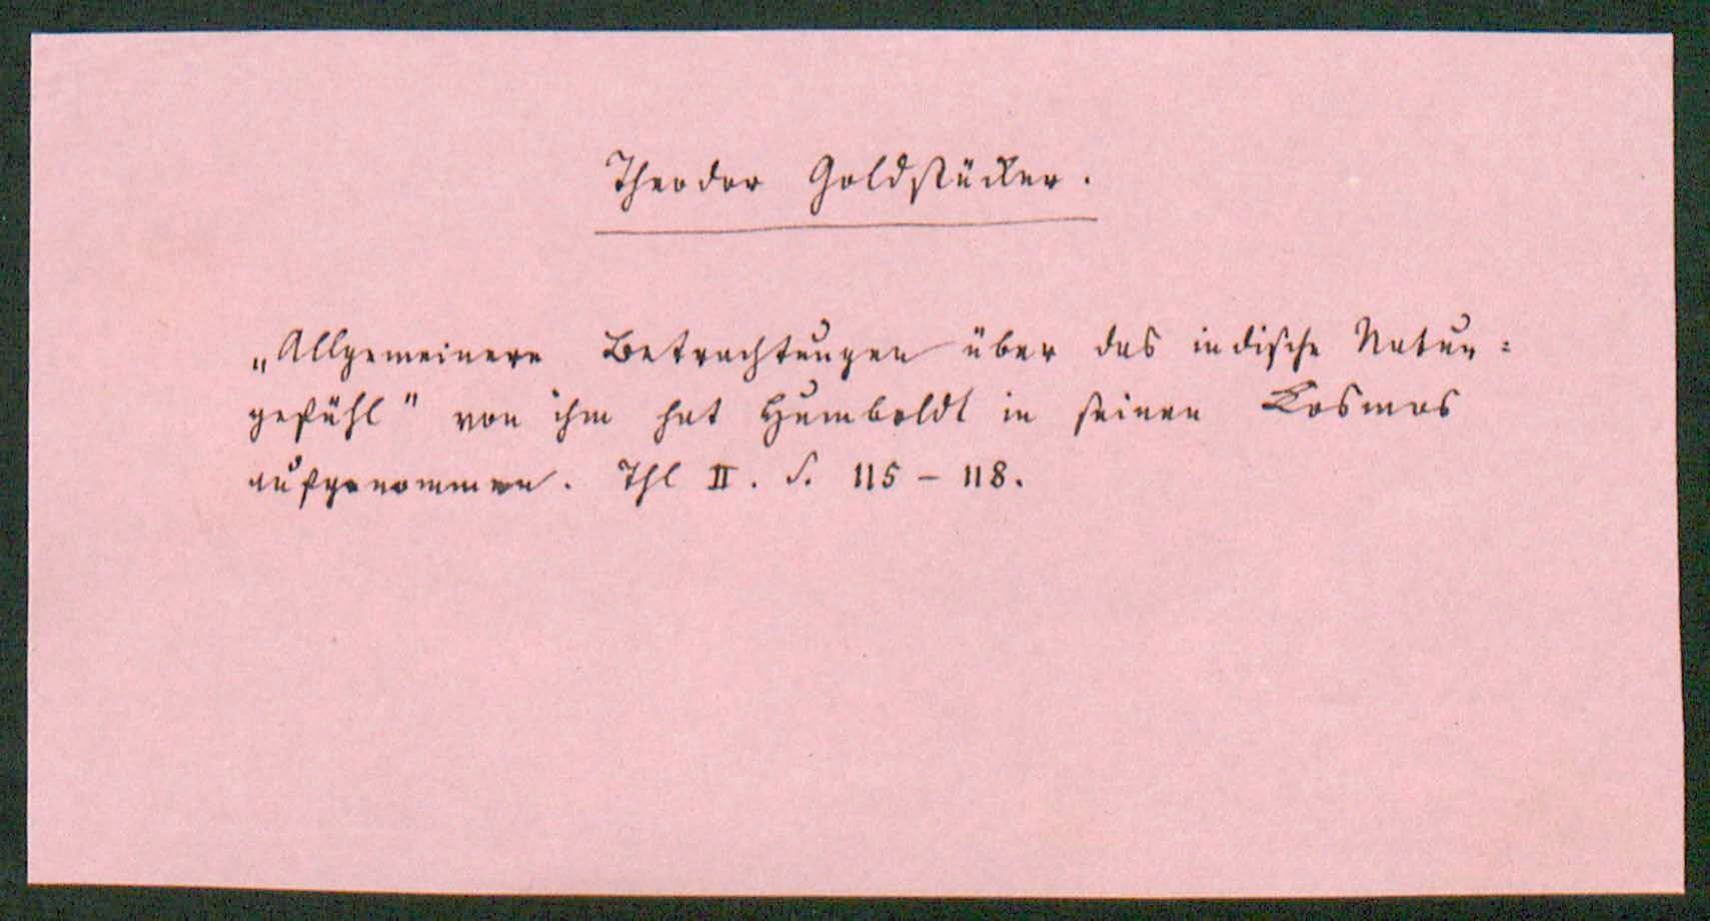 Theodor Goldstücker.
„Allgemeinere Betrachtungen über das indische Natur=
gefühl" von ihm hat Humboldt in seinen Kosmos
aufgenommen. Thl II. S. 115 – 118.